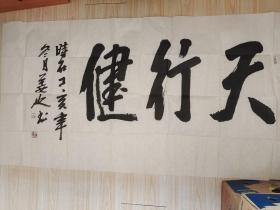 天行健
時在丁亥年
冬月
书